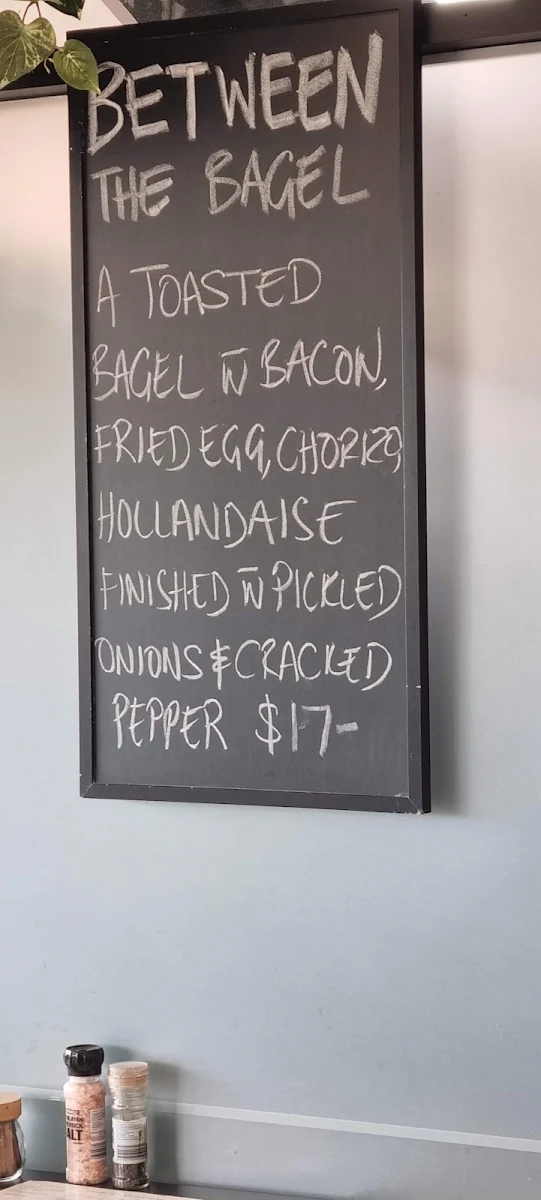 BETWEEN
THE BAGEL
A TOASTED
BAGEL W̅ BACON,
FRIED EGG, CHORIZO
HOLLANDAISE
FINISHED W̅ PICKLED
ONIONS & CRACKED
PEPPER $17-
ALT